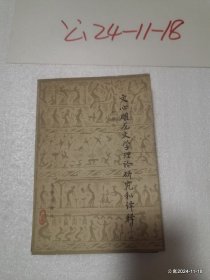 公24-11-18
文心雕龙文学理论研究和译释
云集2024-11-18